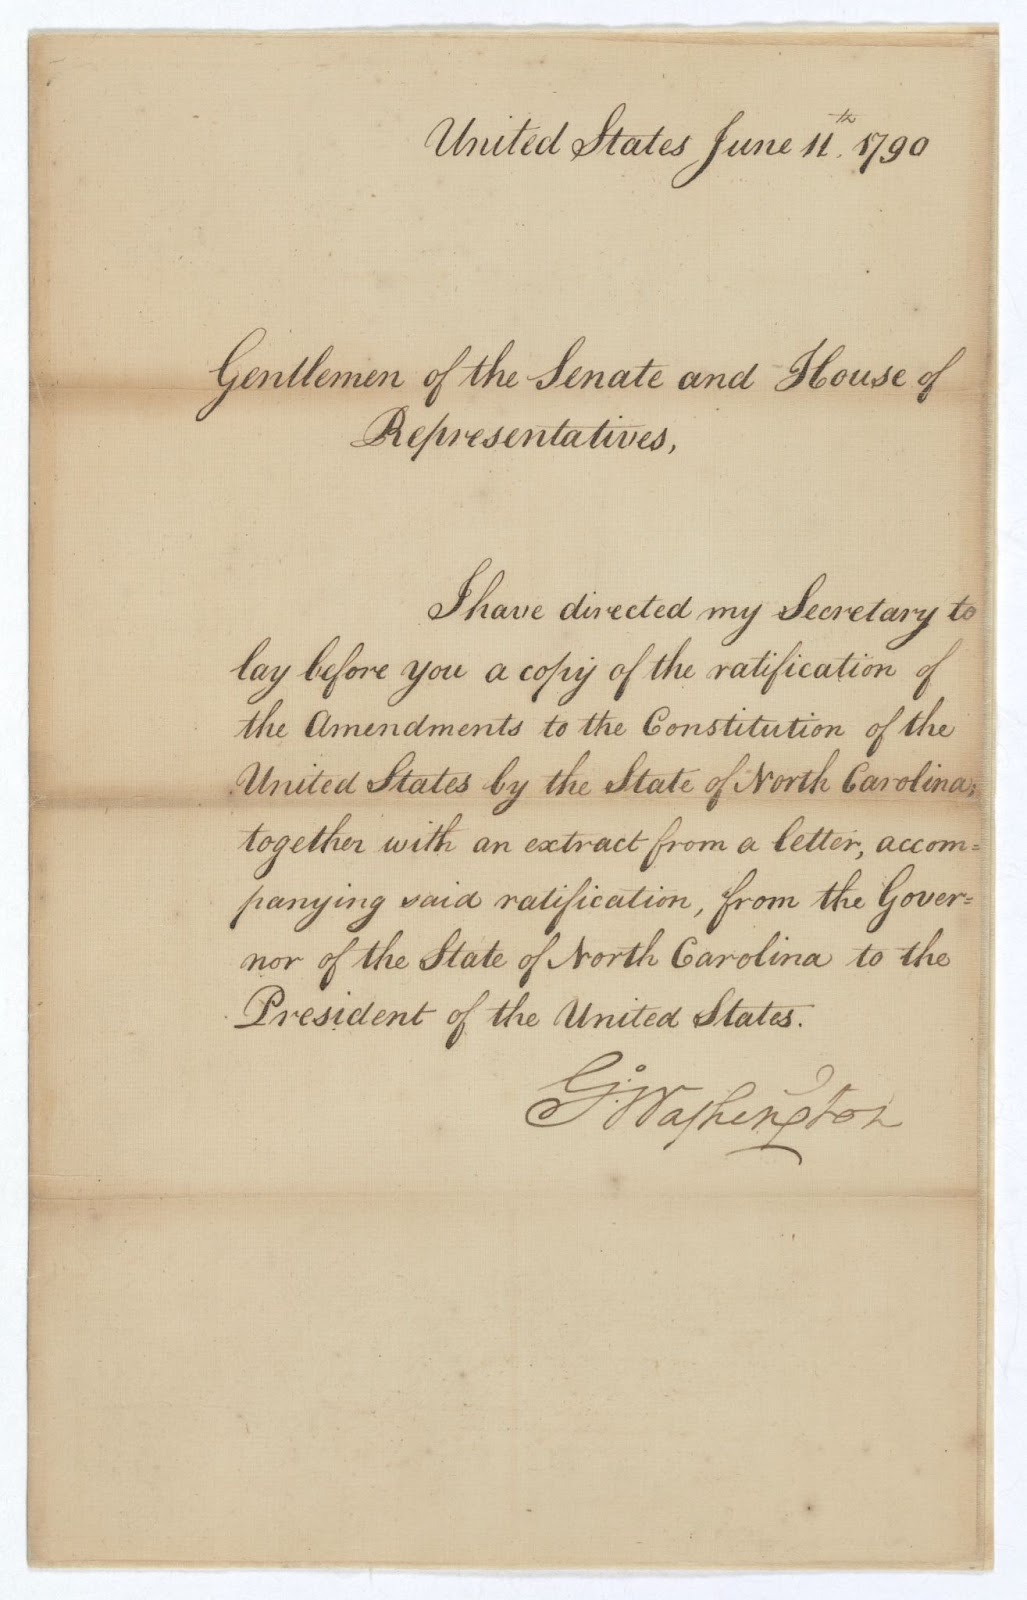 United States June 11th. 1790
Gentlemen of the Senate and House of
Representatives,
I have directed my Secretary to
lay before you a copy of the ratification of
the Amendments to the Constitution of the
United States by the State of North Carolina;
together with an extract from a letter, accom=
panying said ratification, from the Gover=
nor of the State of North Carolina to the
President of the United States.
Go: Washington